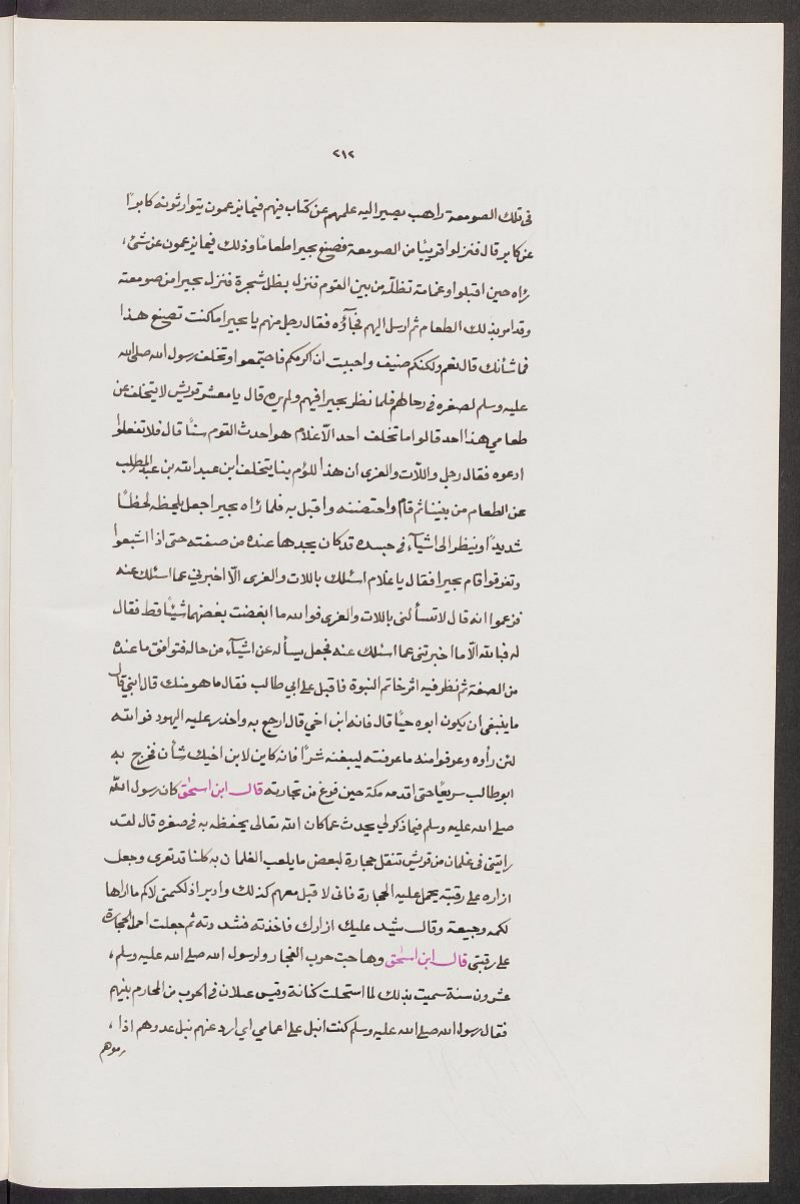 ٢١٢
فى تلك الصومعة راهب يصير اليه علمهم عن كتاب فيهم فيما يزعمون يتوارثونه كابرًا
عن كابر قال فنزلوا قريبًا من الصومعة فصنع بحيرا طعامًا وذلك فيما يزعمون عن شئ،
رٰاه حين اقبلوا وغمامة تظلّه من بين القوم فنزل بظل شجرة فنزل بحيرا من صومعته
وقد امر بذلك الطعام ثم ارسل اليهم فجآؤه فقال رجل منهم يا بحيرا ما كنت تصنع هذا
فما شأنك قال نعم ولكنكم ضيف واحببت ان اكرمكم فاجتمعوا وتخلف رسول الله صلى الله
عليه وسلم لصغره فى رحالهم فلما نظر بحيرا فيهم ولم يره قال يا معشر قريش لا يتخلف عن
طعامي هذا احد قالوا ما تخلف احد الّا غلام هو احدث القوم سنًّا قال فلا تفعلوا
ادعوه فقال رجل واللّات والعزى ان هذا للؤم بنا يتخلف ابن عبد الله بن عبد المطلب
عن الطعام من بيننا ثم قام واحتضنه واقبل به فلما رٰاه بحيرا جعل يلحظه لحظًا
شديدًا وينظر الى اشيآء فى جسده قد كان يجدها عنده من صفته حتى اذا اشبعوا
وتفرقوا قام بحيرا فقال يا غلام اسئلك باللات والعزى الّا اخبرني عما اسئلك عنه
فزعموا انه قال لا تسألنى باللات والعزى فوالله ما ابغضت بغضهما شيئًا قط فقال
له فبالله الّا ما اخبرتنى عما اسئلك عنه فجعل يسأله عن اشيآء من حاله فتوافق ما عنده
من الصفة ثم نظر فيه اثر خاتم النبوة فاقبل على ابي طالب فقال ما هو منك قال ابني قال
ما ينبغى ان يكون ابوه حيًّا قال فانه ابن اخي قال ارجع به واحذر عليه اليهود فوالله
لئن رأوه وعرفوا منه ما عرفته ليبغنه شرًا فانه كاين لابن اخيك شأن فخرج به
ابو طالب سريعًا حتى اقدمه مكة حين فرغ من تجارته قال ابن اسحٰق كان رسول الله
صلى الله عليه وسلم فيما ذكر لي يحدث عما كان الله تعالى يحفظه به فى صغره قال لقد
رايتنى فى غلمان من قريش تنقل حجارة لبعض ما يلعب الغلمان به كلنا قد تعرى وجعل
ازاره على رقبته يحمل عليه الحجارة فانى لاقبل معهم كذلك وادبر اذ لكمنى لاكم ما اراها
لكمه وجيعة وقال شد عليك ازارك فاخذته فشددته ثم جعلت احمل الحجارة
على رقبتى قال ابن اسحٰق وهاجت حرب الفجار ولرسول الله صلى الله عليه وسلم،
عشرون سنة سميت بذلك لما استحلت كنانة وقيس عيلان فى الحرب من المحارم بينهم
فقال رسول الله صلى الله عليه وسلم كنت انبل على اعمامي اي ارد عنهم نبل عدوهم اذا،
رموهم